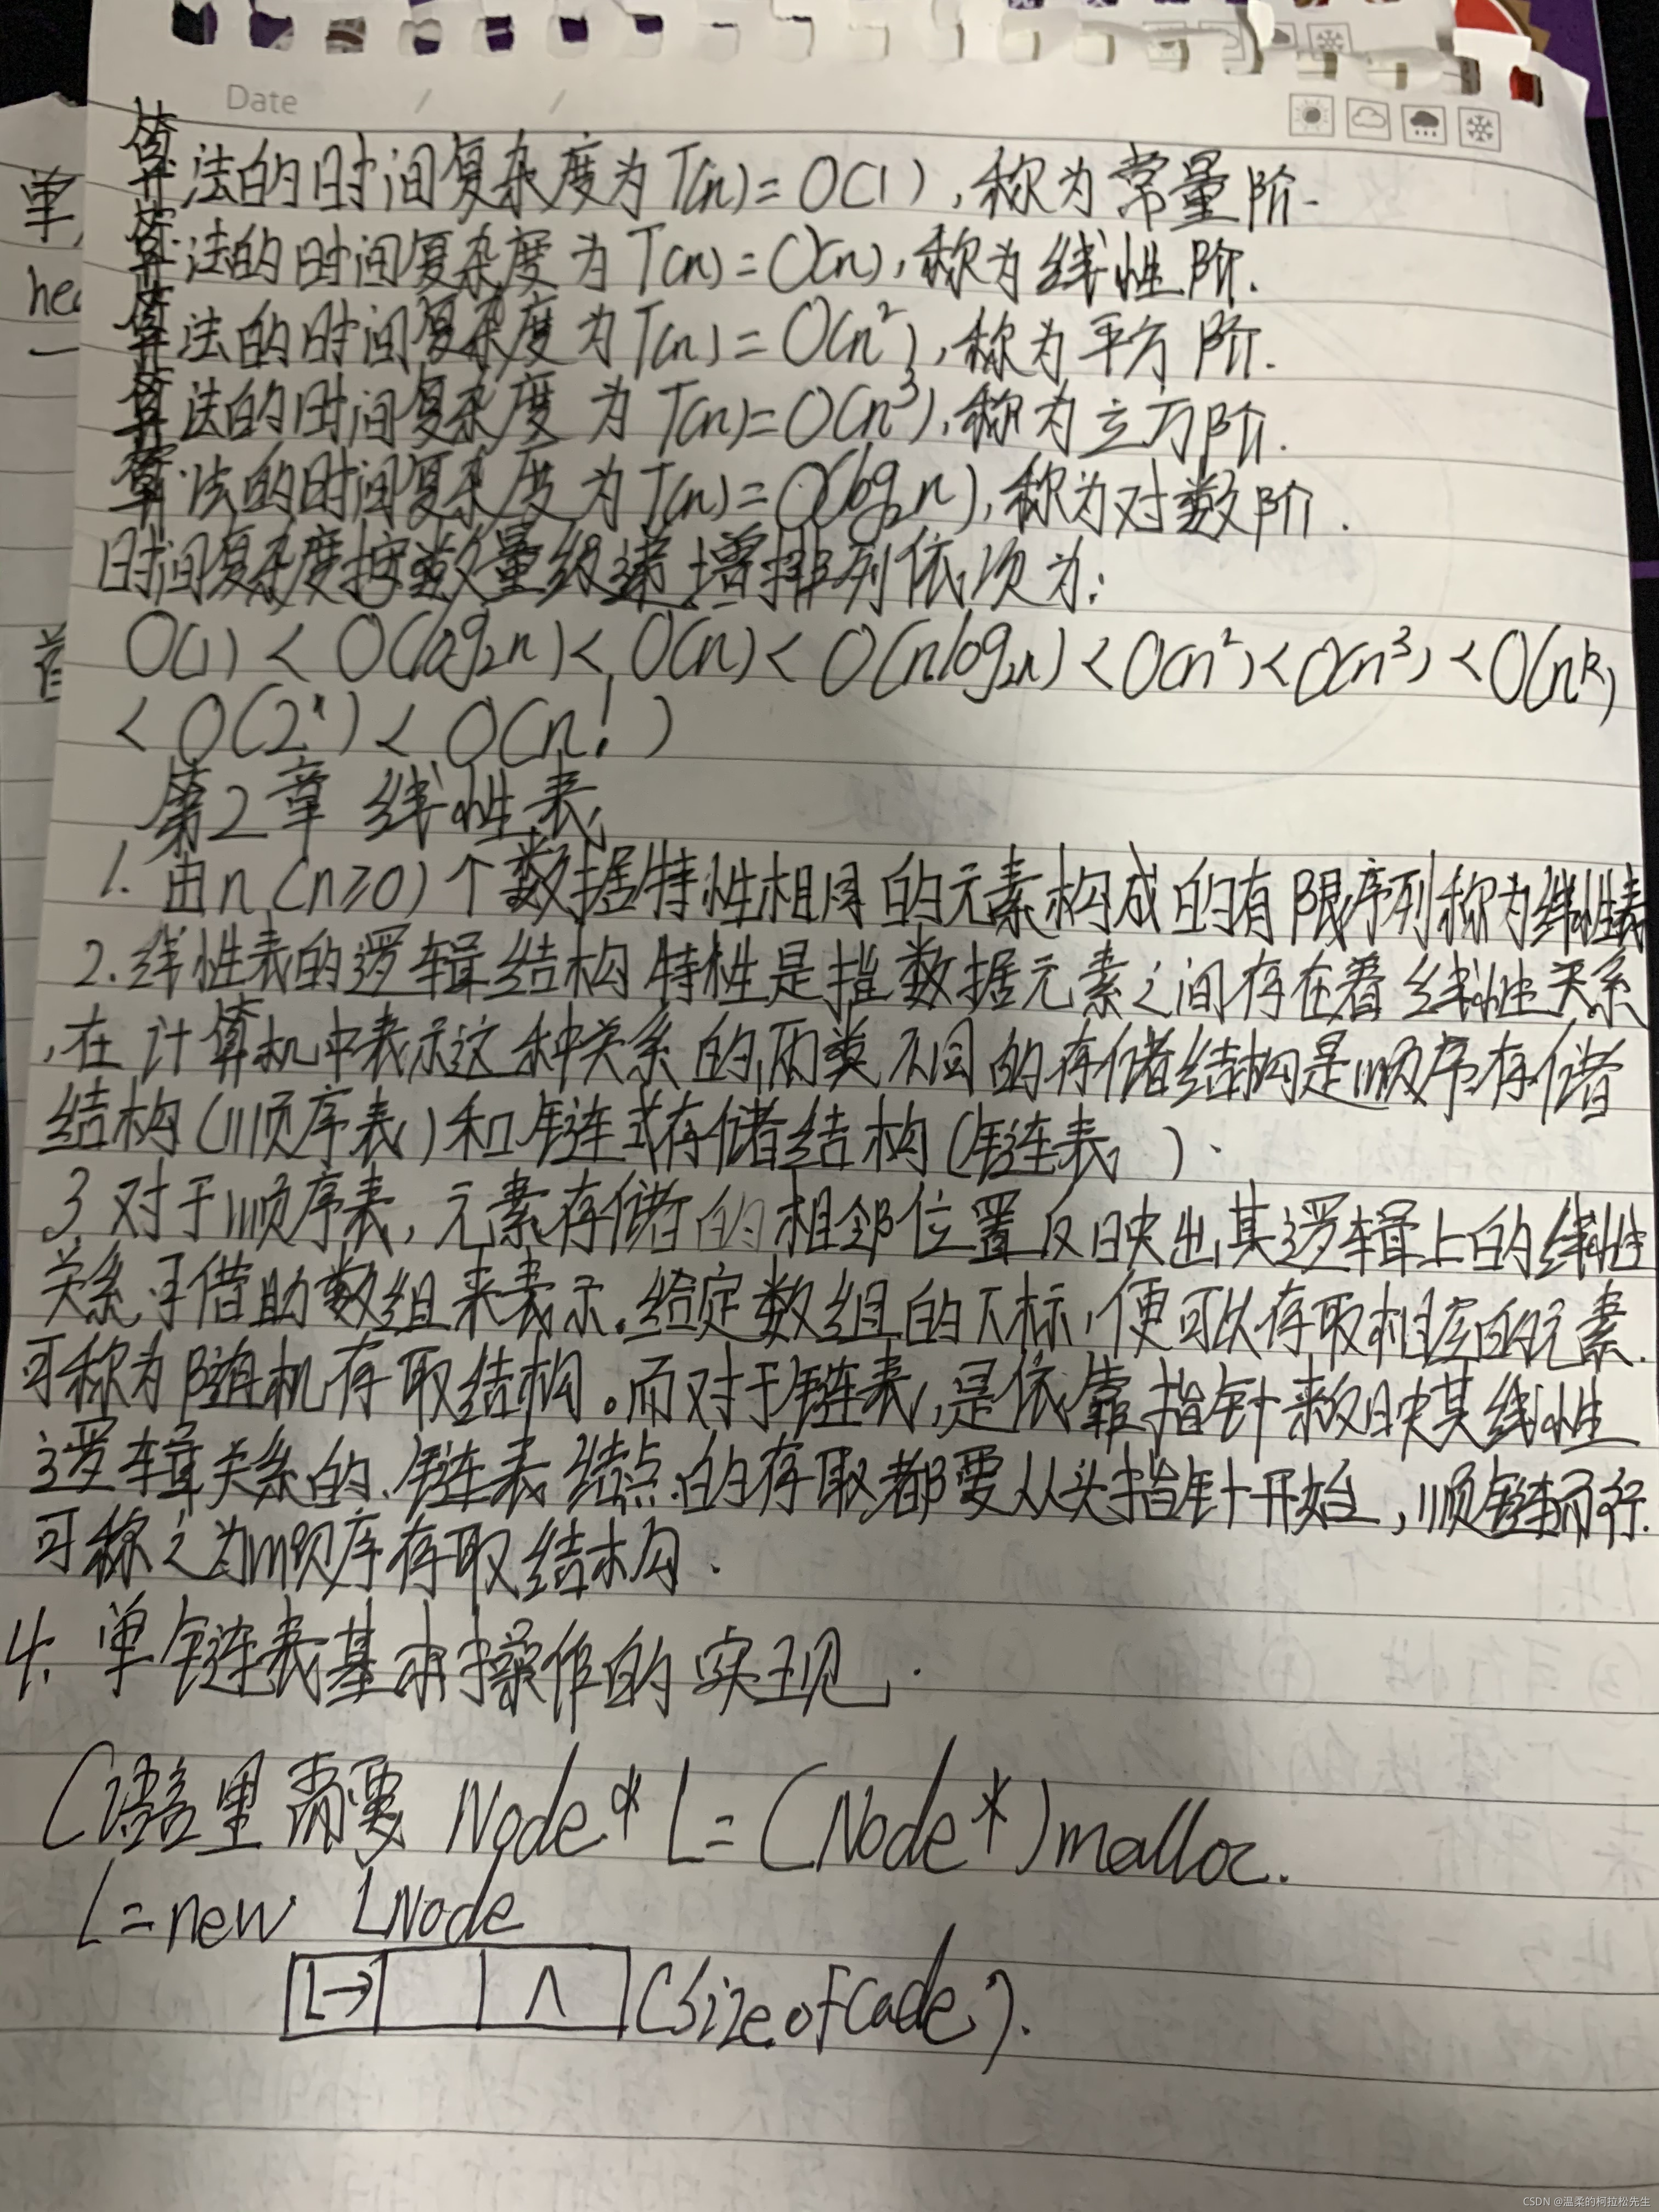 Date / /
算法的时间复杂度为T(n)=O(1),称为常量阶.
算法的时间复杂度为T(n)=O(n),称为线性阶.
算法的时间复杂度为T(n)=O(n²),称为平方阶.
算法的时间复杂度为T(n)=O(n³),称为立方阶.
算法的时间复杂度为T(n)=O(log₂n),称为对数阶.
时间复杂度按数量级递增排列依次为:
O(1)<O(log₂n)<O(n)<O(nlog₂n)<O(n²)<O(n³)<O(nᵏ)
<O(2ⁿ)<O(n!)
第2章 线性表
1.由n(n≥0)个数据特性相同的元素构成的有限序列称为线性表
2.线性表的逻辑结构特性是指数据元素之间存在着线性关系
,在计算机中表示这种关系的两类不同的存储结构是顺序存储
结构(顺序表)和链式存储结构(链表).
3 对于顺序表,元素存储的相邻位置反映出其逻辑上的线性
关系,可借助数组来表示.给定数组的下标,便可以存取相应的元素.
可称为随机存取结构。而对于链表,是依靠指针来反映其线性
逻辑关系的.链表结点的存取都要从头指针开始,顺链而行.
可称之为顺序存取结构.
4.单链表基本操作的实现.
C语言里需要 Node* L=(Node*)malloc.
L=new LNode
L→ ∧ (sizeofcade).
单
hea
一
CSDN @温柔的柯拉松先生